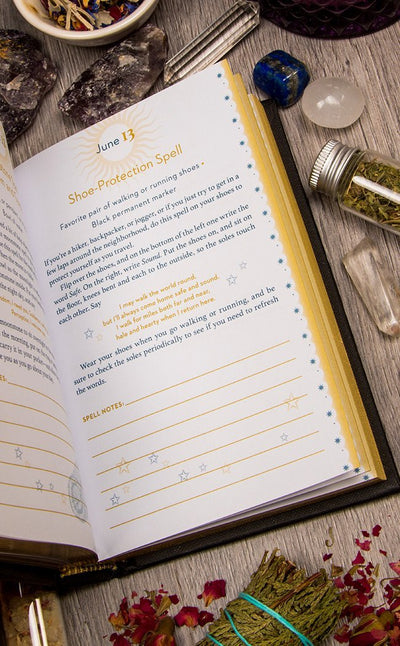 June 13
Shoe-Protection Spell
Favorite pair of walking or running shoes •
Black permanent marker
If you're a hiker, backpacker, or jogger, or if you just try to get in a
few laps around the neighborhood, do this spell on your shoes to
protect yourself as you travel.
Flip over the shoes, and on the bottom of the left one write the
word Safe. On the right, write Sound. Put the shoes on, and sit on
the floor, knees bent and each to the outside, so the soles touch
each other. Say
I may walk the world round,
but I'll always come home safe and sound.
I walk for miles both far and near,
hale and hearty when I return here.
Wear your shoes when you go walking or running, and be
sure to check the soles periodically to see if you need to refresh
the words.
SPELL NOTES: